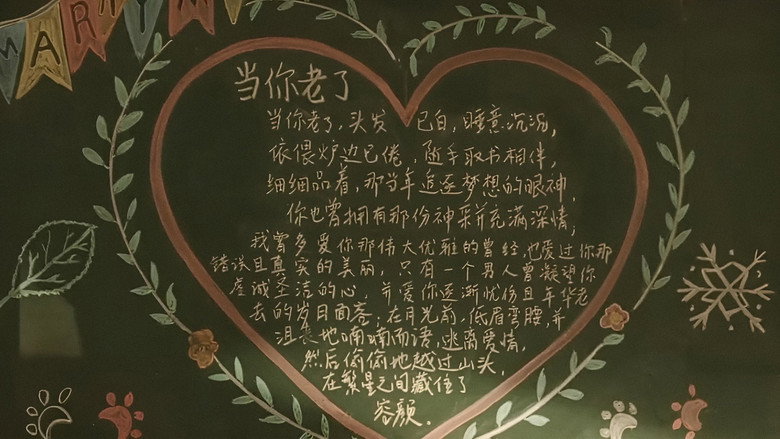 MARRY M
当你老了
当你老了,头发 已白,睡意沉沉,
依偎炉边已倦,随手取书相伴,
细细品着,那当年追逐梦想的眼神,
你也曾拥有那份神采并充满深情;
我曾多爱你那伟大优雅的曾经,也爱过你那
错误且真实的美丽,只有一个男人曾凝望你
虔诚圣洁的心,并爱你逐渐忧伤且年华老
去的岁月面容,在月光前,低眉弯腰,并
沮丧地喃喃而语,逃离爱情,
然后偷偷地越过山头,
在繁星之间藏住了
容颜.